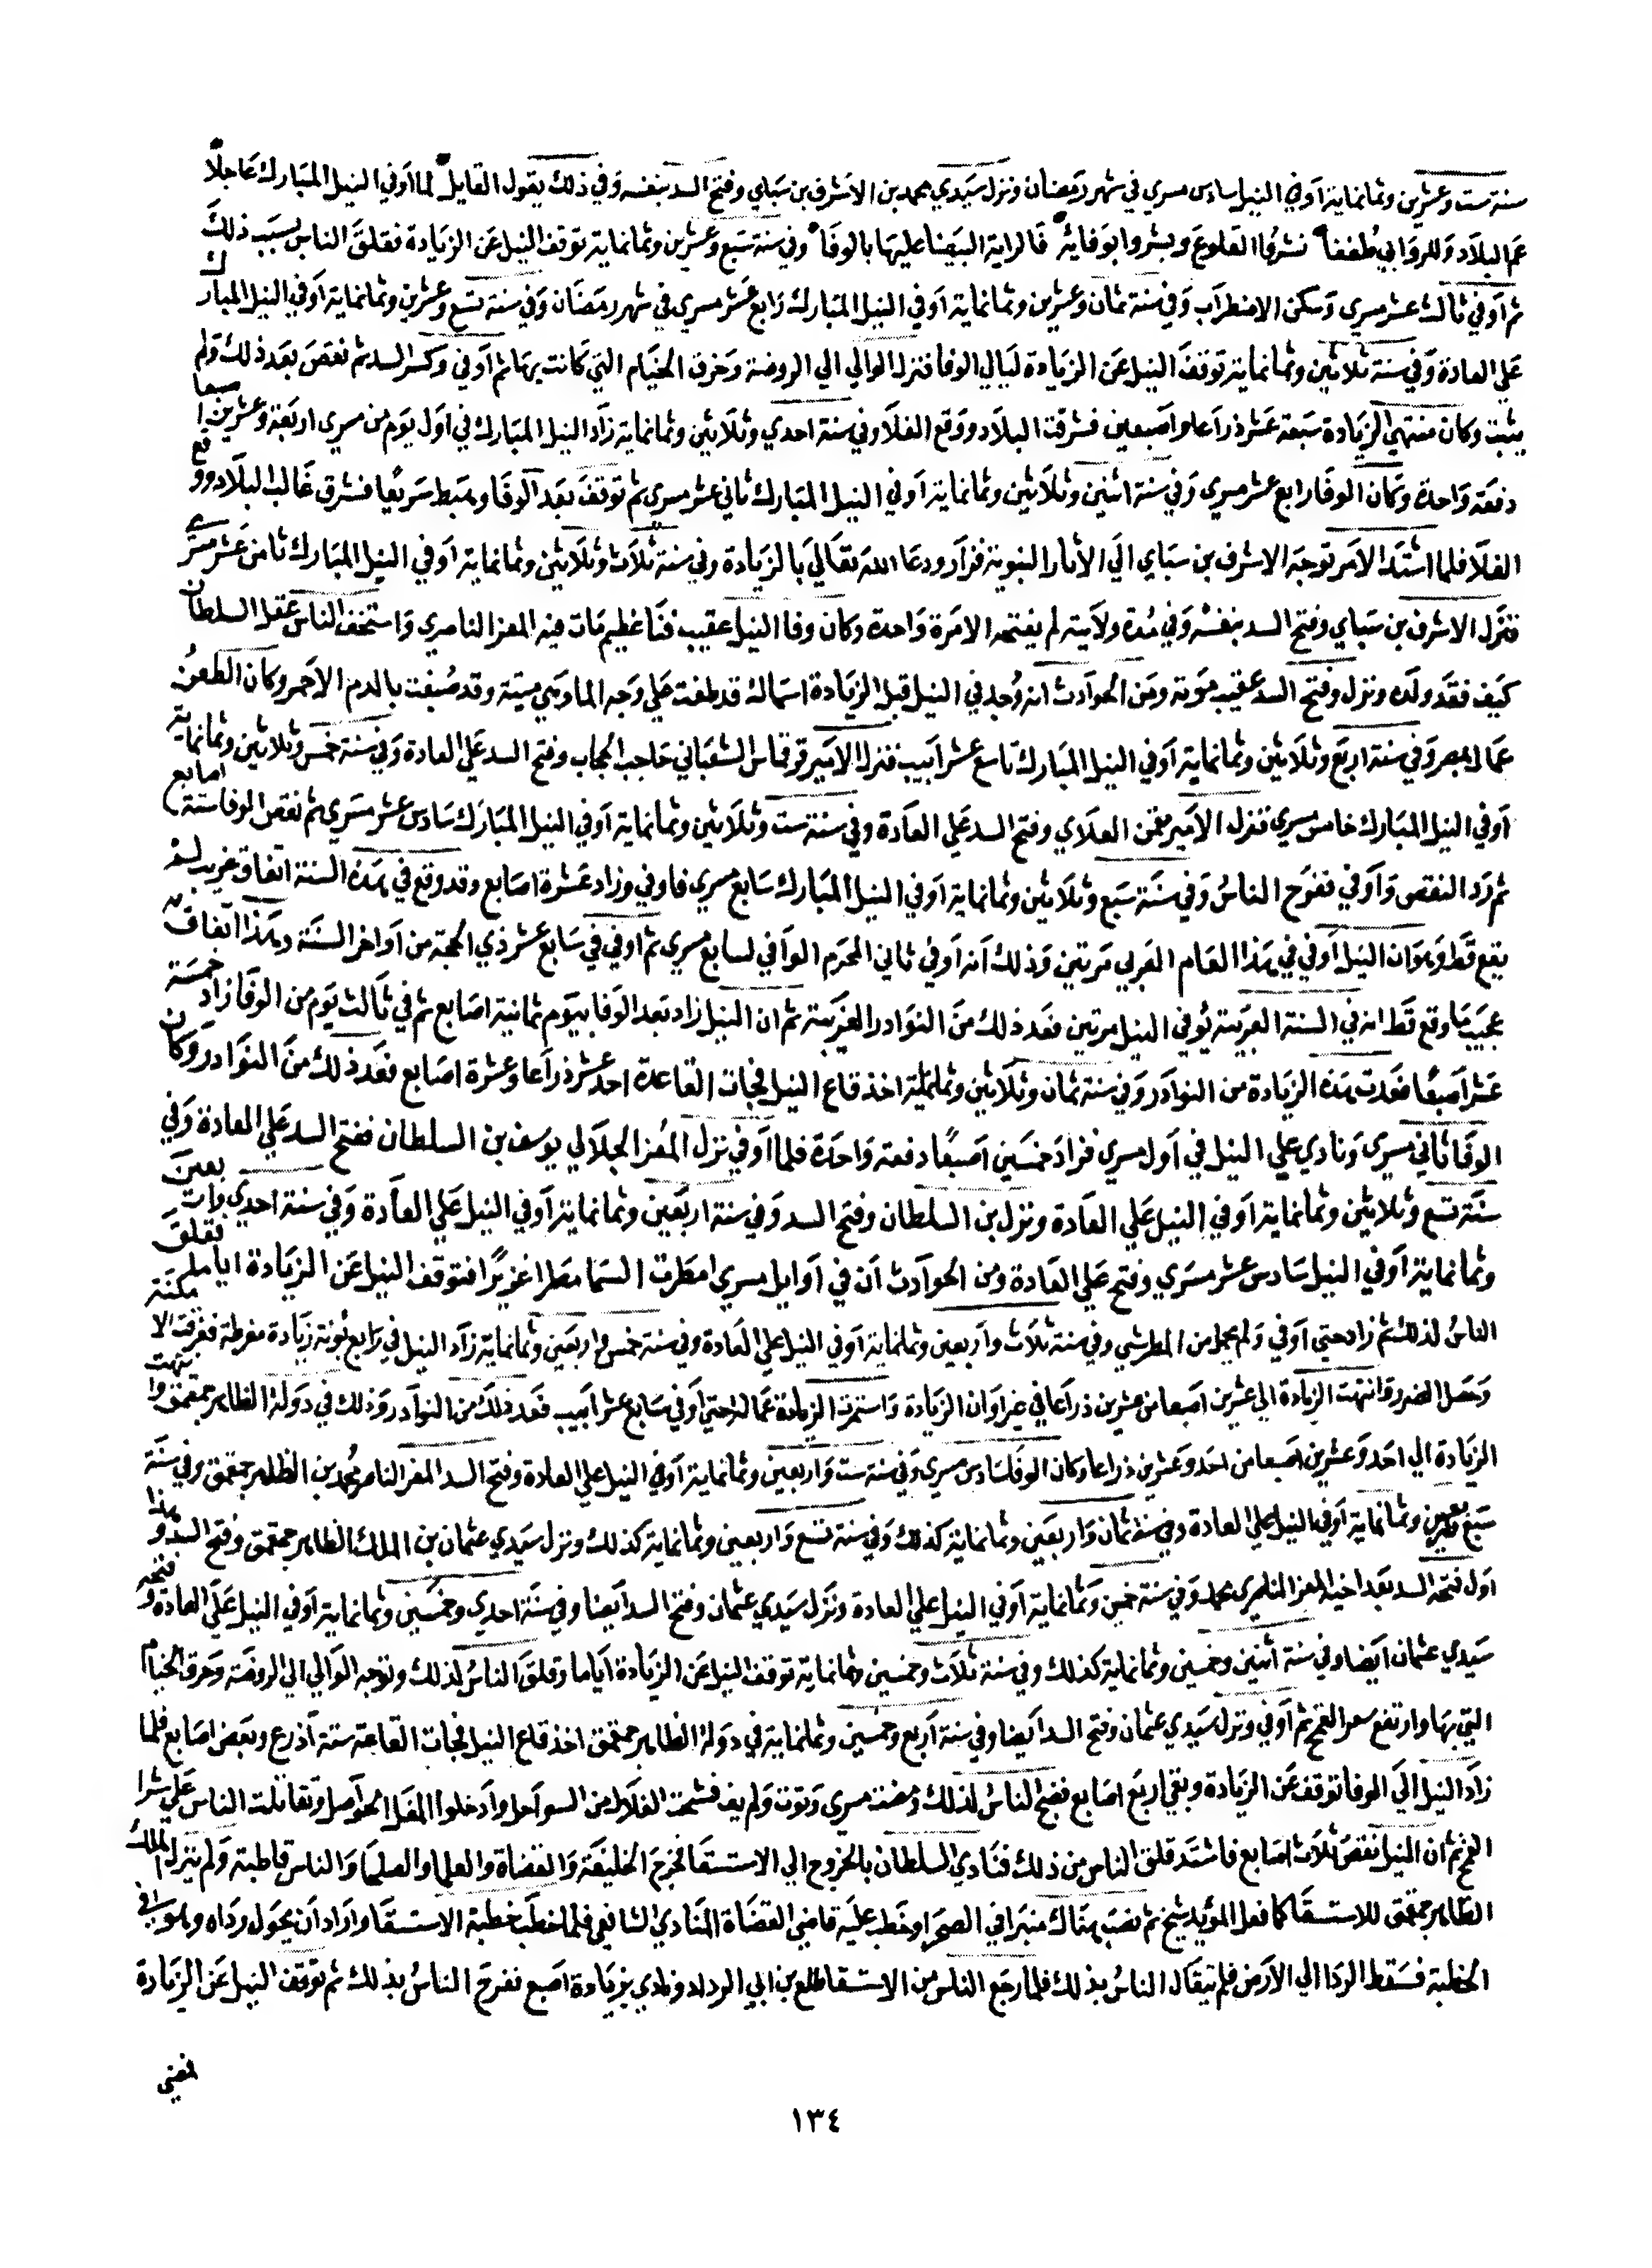 سنة ست وعشرين وثمانماية اوفي النيل سادس مسري في شهر رمضان ونزل سيدي محمد بن الاشرف بن سباي وفتح السد بنفسه وفي ذلك يقول القايل لما اوفي النيل المبارك عاجلا
عم البلاد وللروابي طففا نشروا القلوع وبشروا بوفايه فالراية البيضا عليها بالوفا وفي سنة سبع وعشرين وثمانماية توقف النيل عن الزيادة فقلق الناس بسبب ذلك
ثم اوفي ثالث عشر مسري وسكن الاضطراب وفي سنة ثمان وعشرين وثمانماية اوفي النيل المبارك رابع عشر مسري في شهر رمضان وفي سنة تسع وعشرين وثمانماية اوفي النيل المبارك
علي العادة وفي سنة ثلاثين وثمانماية توقف النيل عن الزيادة ليالي الوفا فنزل الوالي الي الروضة وحرق الخيام التي كانت بها ثم اوفي وكسر السد ثم نقص بعد ذلك ولم
يثبت وكان منتهي الزيادة سبعة عشر ذراعا واصبعين فشرقت البلاد ووقع الغلا وفي سنة احدي وثلاثين وثمانماية زاد النيل المبارك في اول يوم من مسري اربعة وعشرين اصبعا
دفعة واحدة وكان الوفا رابع عشر مسري وفي سنة اثنين وثلاثين وثمانماية اوفي النيل المبارك ثاني عشر مسري ثم توقف بعد الوفا وهبط سريعا فشرق غالب البلاد ووقع
الغلا فلما اشتد الامر توجه الاشرف بن سباي الي الاثار النبوية فزار ودعا الله تعالي بالزيادة وفي سنة ثلاث وثلاثين وثمانماية اوفي النيل المبارك ثامن عشر مسري
فنزل الاشرف بن سباي وفتح السد بنفسه وفي مدة ولايته لم يفتحه الا مرة واحدة وكان وفا النيل عقيب فنا عظيم مات فيه المعز الناصري واستخف الناس عقل السلطان
كيف فقد ولده ونزل وفتح السد عقيب موته ومن الحوادث انه وجد في النيل قبل الزيادة اسماك قد طفت علي وجه الما وهي ميتة وقد صبغت بالدم الاحمر وكان الطعن
عمال بمصر وفي سنة اربع وثلاثين وثمانماية اوفي النيل المبارك تاسع عشر ابيب فنزل الامير قرقماس الشعباني حاجب الحجاب وفتح السد علي العادة وفي سنة خمس وثلاثين وثمانماية
اوفي النيل المبارك خامس مسري فنزل الامير جقمق العلاي وفتح السد علي العادة وفي سنة ست وثلاثين وثمانماية اوفي النيل المبارك سادس عشر مسري ثم نقص الوفا ستة اصابع
ثم رد النقص واوفي ففرح الناس وفي سنة سبع وثلاثين وثمانماية اوفي النيل المبارك سابع مسري فاوفي وزاد عشرة اصابع وقد وقع في هذه السنة اتفاق غريب لم
يقع قط وهو ان النيل اوفي في هذا العام العربي مرتين وذلك انه اوفي ثاني المحرم الوافي لسابع مسري ثم اوفي في سابع عشر ذي الحجة من اواخر السنة وهذا اتفاق
عجيب ما وقع قط انه في السنة العربية يوفي النيل مرتين فعد ذلك من النوادر الغريبة ثم ان النيل زاد بعد الوفا بيوم ثمانية اصابع ثم في ثالث يوم من الوفا زاد خمسة
عشر اصبعا فعدت هذه الزيادة من النوادر وفي سنة ثمان وثلاثين وثمانماية اخذ قاع النيل فجات القاعدة احد عشر ذراعا وعشرة اصابع فعد ذلك من النوادر وكان
الوفا ثاني مسري ونادي علي النيل في اول مسري فزاد خمسين اصبعا دفعة واحدة فلما اوفي نزل المعز الجلالي يوسف بن السلطان ففتح السد علي العادة وفي
سنة تسع وثلاثين وثمانماية اوفي النيل علي العادة ونزل بن السلطان وفتح السد وفي سنة اربعين وثمانماية اوفي النيل علي العادة وفي سنة احدي واربعين
وثمانماية اوفي النيل سادس عشر مسري وفتح علي العادة ومن الحوادث ان في اوايل مسري امطرت السما مطرا غزيرا فتوقف النيل عن الزيادة اياما فقلق
الناس لذلك ثم زاد حتي اوفي ولم يحمل من المطر شي وفي سنة ثلاث واربعين وثمانماية اوفي النيل علي العادة وفي سنة خمس واربعين وثمانماية زاد النيل في رابع بونة زيادة مفرطة فغرقت الامكنة
وحصل الضرر وانتهت الزيادة الي عشرين اصبعا من عشرين ذراعا في غير اوان الزيادة واستمرت الزيادة عمالة حتي اوفي سابع عشر ابيب فعد ذلك من النوادر وذلك في دولة الظاهر جقمق وانتهت
الزيادة الي احد وعشرين اصبعا من احد وعشرين ذراعا وكان الوفا سادس مسري وفي سنة ست واربعين وثمانماية اوفي النيل علي العادة وفتح السد المقر الناصر محمد بن الظاهر جقمق وفي سنة
سبع واربعين وثمانماية اوفي النيل علي العادة وفي سنة ثمان واربعين وثمانماية كذلك وفي سنة تسع واربعين وثمانماية كذلك ونزل سيدي عثمان بن الملك الظاهر جقمق وفتح السد وهذا
اول فتحه السد بعد اخيه المعز الناصري محمد وفي سنة خمسين وثمانماية اوفي النيل علي العادة ونزل سيدي عثمان وفتح السد ايضا وفي سنة احدي وخمسين وثمانماية اوفي النيل علي العادة وفتحه
سيدي عثمان ايضا وفي سنة اثنين وخمسين وثمانماية كذلك وفي سنة ثلاث وخمسين وثمانماية توقف النيل عن الزيادة اياما وقلق الناس لذلك وتوجه الوالي الي الروضة وحرق الخيام
التي بها وارتفع سعر القمح ثم اوفي ونزل سيدي عثمان وفتح السد ايضا وفي سنة اربع وخمسين وثمانماية في دولة الظاهر جقمق اخذ قاع النيل فجات القاعة ستة اذرع وبعض اصابع فلما
زاد النيل الي الوفا توقف عن الزيادة وبقي اربع اصابع فضج الناس لذلك ومضت مسري وتوت ولم يف فشحت الغلال من السواحل وادخلوا المغل الحواصل وتقاتلت الناس علي شرا
القمح ثم ان النيل نقص ثلاث اصابع فاشتد قلق الناس من ذلك فنادي السلطان بالخروج الي الاستسقا فخرج الخليفة والقضاة والعلما والصلحا والناس قاطبة ولم ينزل الملك
الظاهر جقمق للاستسقا كما فعل المؤيد شيخ ثم نصب هناك منبرا في الصحرا وخطب عليه قاضي القضاة المنادي الشافعي فلما خطب خطبة الاستسقا واراد ان يحول رداه وهو في
الخطبة فسقط الردا الي الارض فلم تيفال الناس بذلك فلما رجع الناس من الاستسقا طلع بن ابي الرداد ونادي بزيادة اصبع ففرح الناس بذلك ثم توقف النيل عن الزيادة
١٣٤